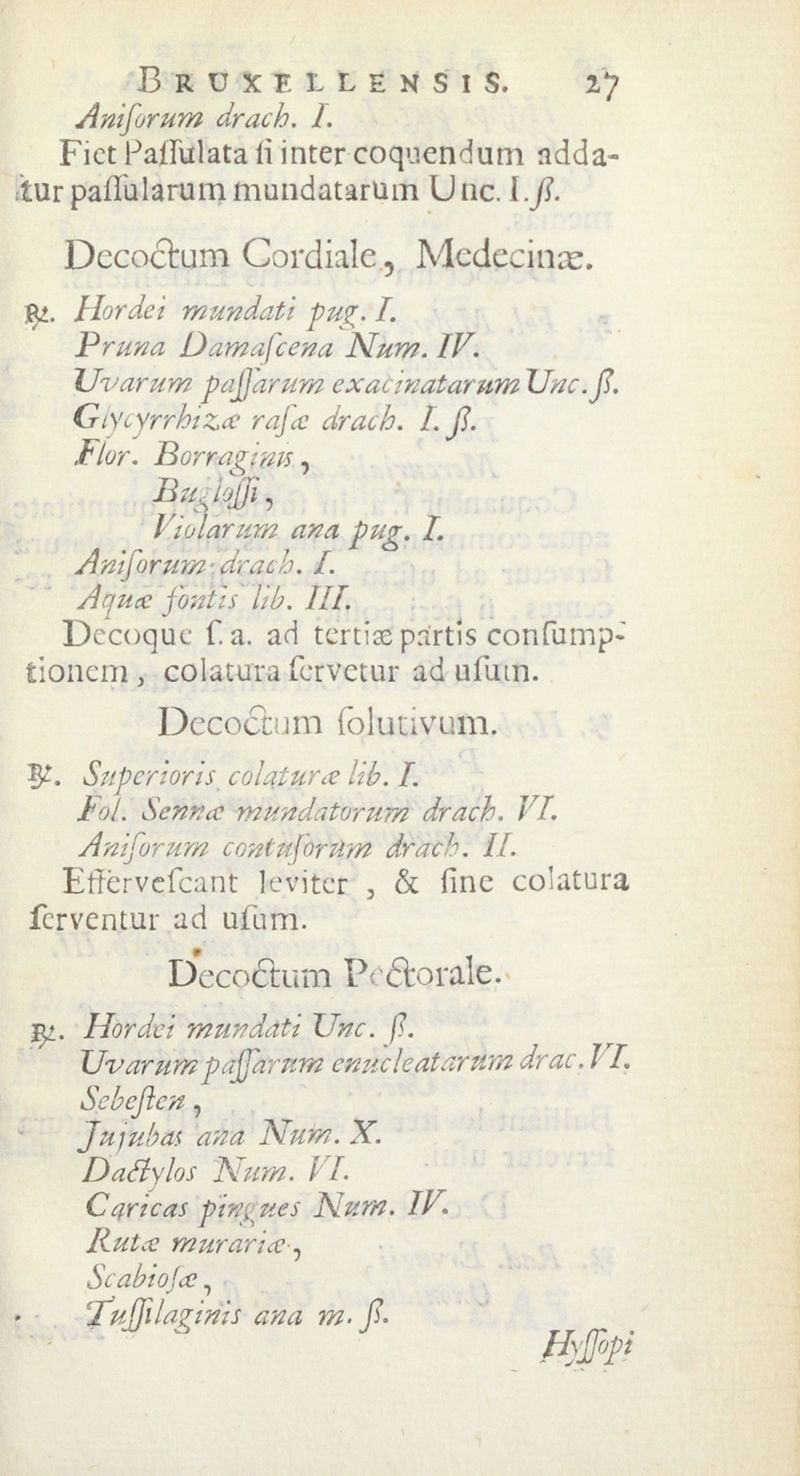 BRUXELLENSIS. 27
Aniſorum drach. I.
Fiet Paſſulata ſi inter coquendum adda-
tur paſſularum mundatarum Unc. I.ß.
Decoctum Cordiale, Medecinæ.
℞. Hordei mundati pug. I.
Pruna Damaſcena Num. IV.
Uvarum paſſarum exacinatarum Unc.ß.
Glycyrrhizæ raſæ drach. I. ß.
Flor. Borraginis,
Bugloſſi,
Violarum ana pug. I.
Aniſorum drach. I.
Aquæ fontis lib. III.
Decoque ſ. a. ad tertiæ partis conſump-
tionem, colatura ſervetur ad uſum.
Decoctum ſolutivum.
℞. Superioris colaturæ lib. I.
Fol. Sennæ mundatorum drach. VI.
Aniſorum contuſorum drach. II.
Efferveſcant leviter , & ſine colatura
ſerventur ad uſum.
Decoctum Pectorale.
℞. Hordei mundati Unc. ß.
Uvarum paſſarum enucleatarum drac. VI.
Sebeſten,
Jujubas ana Num. X.
Dactylos Num. VI.
Caricas pingues Num. IV.
Rutæ murariæ,
Scabioſæ,
Tuſſilaginis ana m. ß.
Hyſſopi